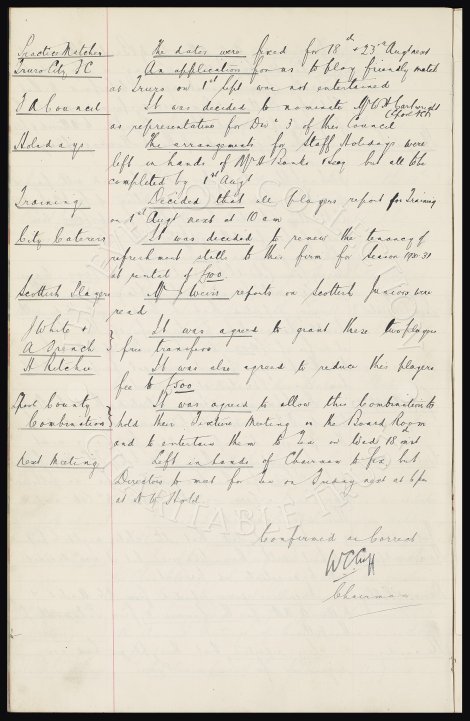 Practice Matches The dates were fixed for 18th & 23rd Aug next
Truro City FC An application for us to play friendly match
at Truro on 1st Sept was not entertained
F A Council It was decided to nominate Mr W H Cartwright
as representative for Divn 3 of this Council
Holidays The arrangements for Staff Holidays were
left in hands of Mr H Banks & Secy but all to be
completed by 1st Augt
Training Decided that all players report for Training
on 1st Augt next at 10 am
City Caterers It was decided to renew the tenancy of
refreshment stalls to this firm for Season 1930-31
at rental of £100.
Scottish Players Mr J Weir's reports on Scottish Juniors were
read
J White & It was agreed to grant these two players
A Spench } free transfers
H Ritchie It was also agreed to reduce this players
fee to £500
Lpool County It was agreed to allow this Combination to
Combination } hold their Fixture Meeting in the Board Room
and to entertain them to Tea on Wed 18 inst
Next Meeting Left in hands of Chairman to fix, but
Directors to meet for Tea on Friday next at 6 pm
at N W Hotel.
Confirmed as Correct
W C Cuff
Chairman